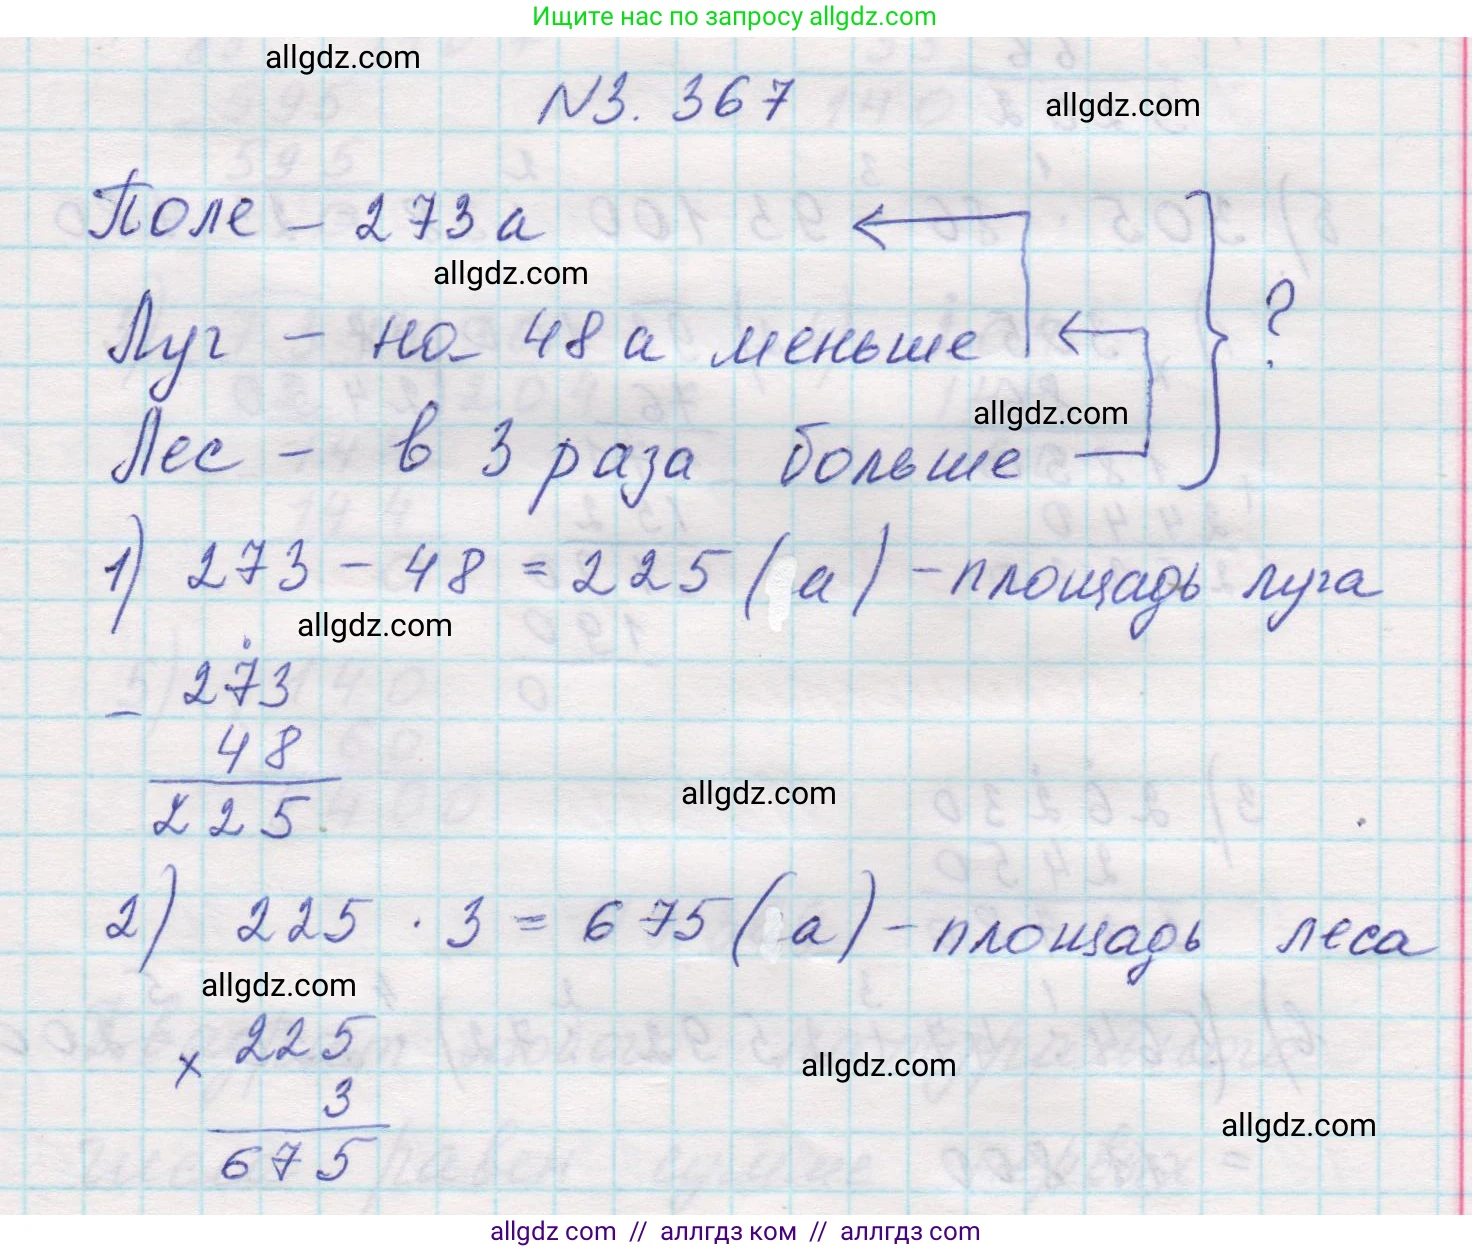 Ищите нас по запросу allgdz.com
allgdz.com
N3. 367
allgdz.com
Поле – 273 а
allgdz.com
Луг – на 48 а меньше
?
allgdz.com
Лес – в 3 раза больше
1) 273 – 48 = 225 (а) – площадь луга
allgdz.com
273
– 48
225
allgdz.com
2) 225 · 3 = 675 (а) – площадь леса
allgdz.com
225
× 3
allgdz.com
675
allgdz.com
allgdz.com // аллгдз ком // аллгдз com